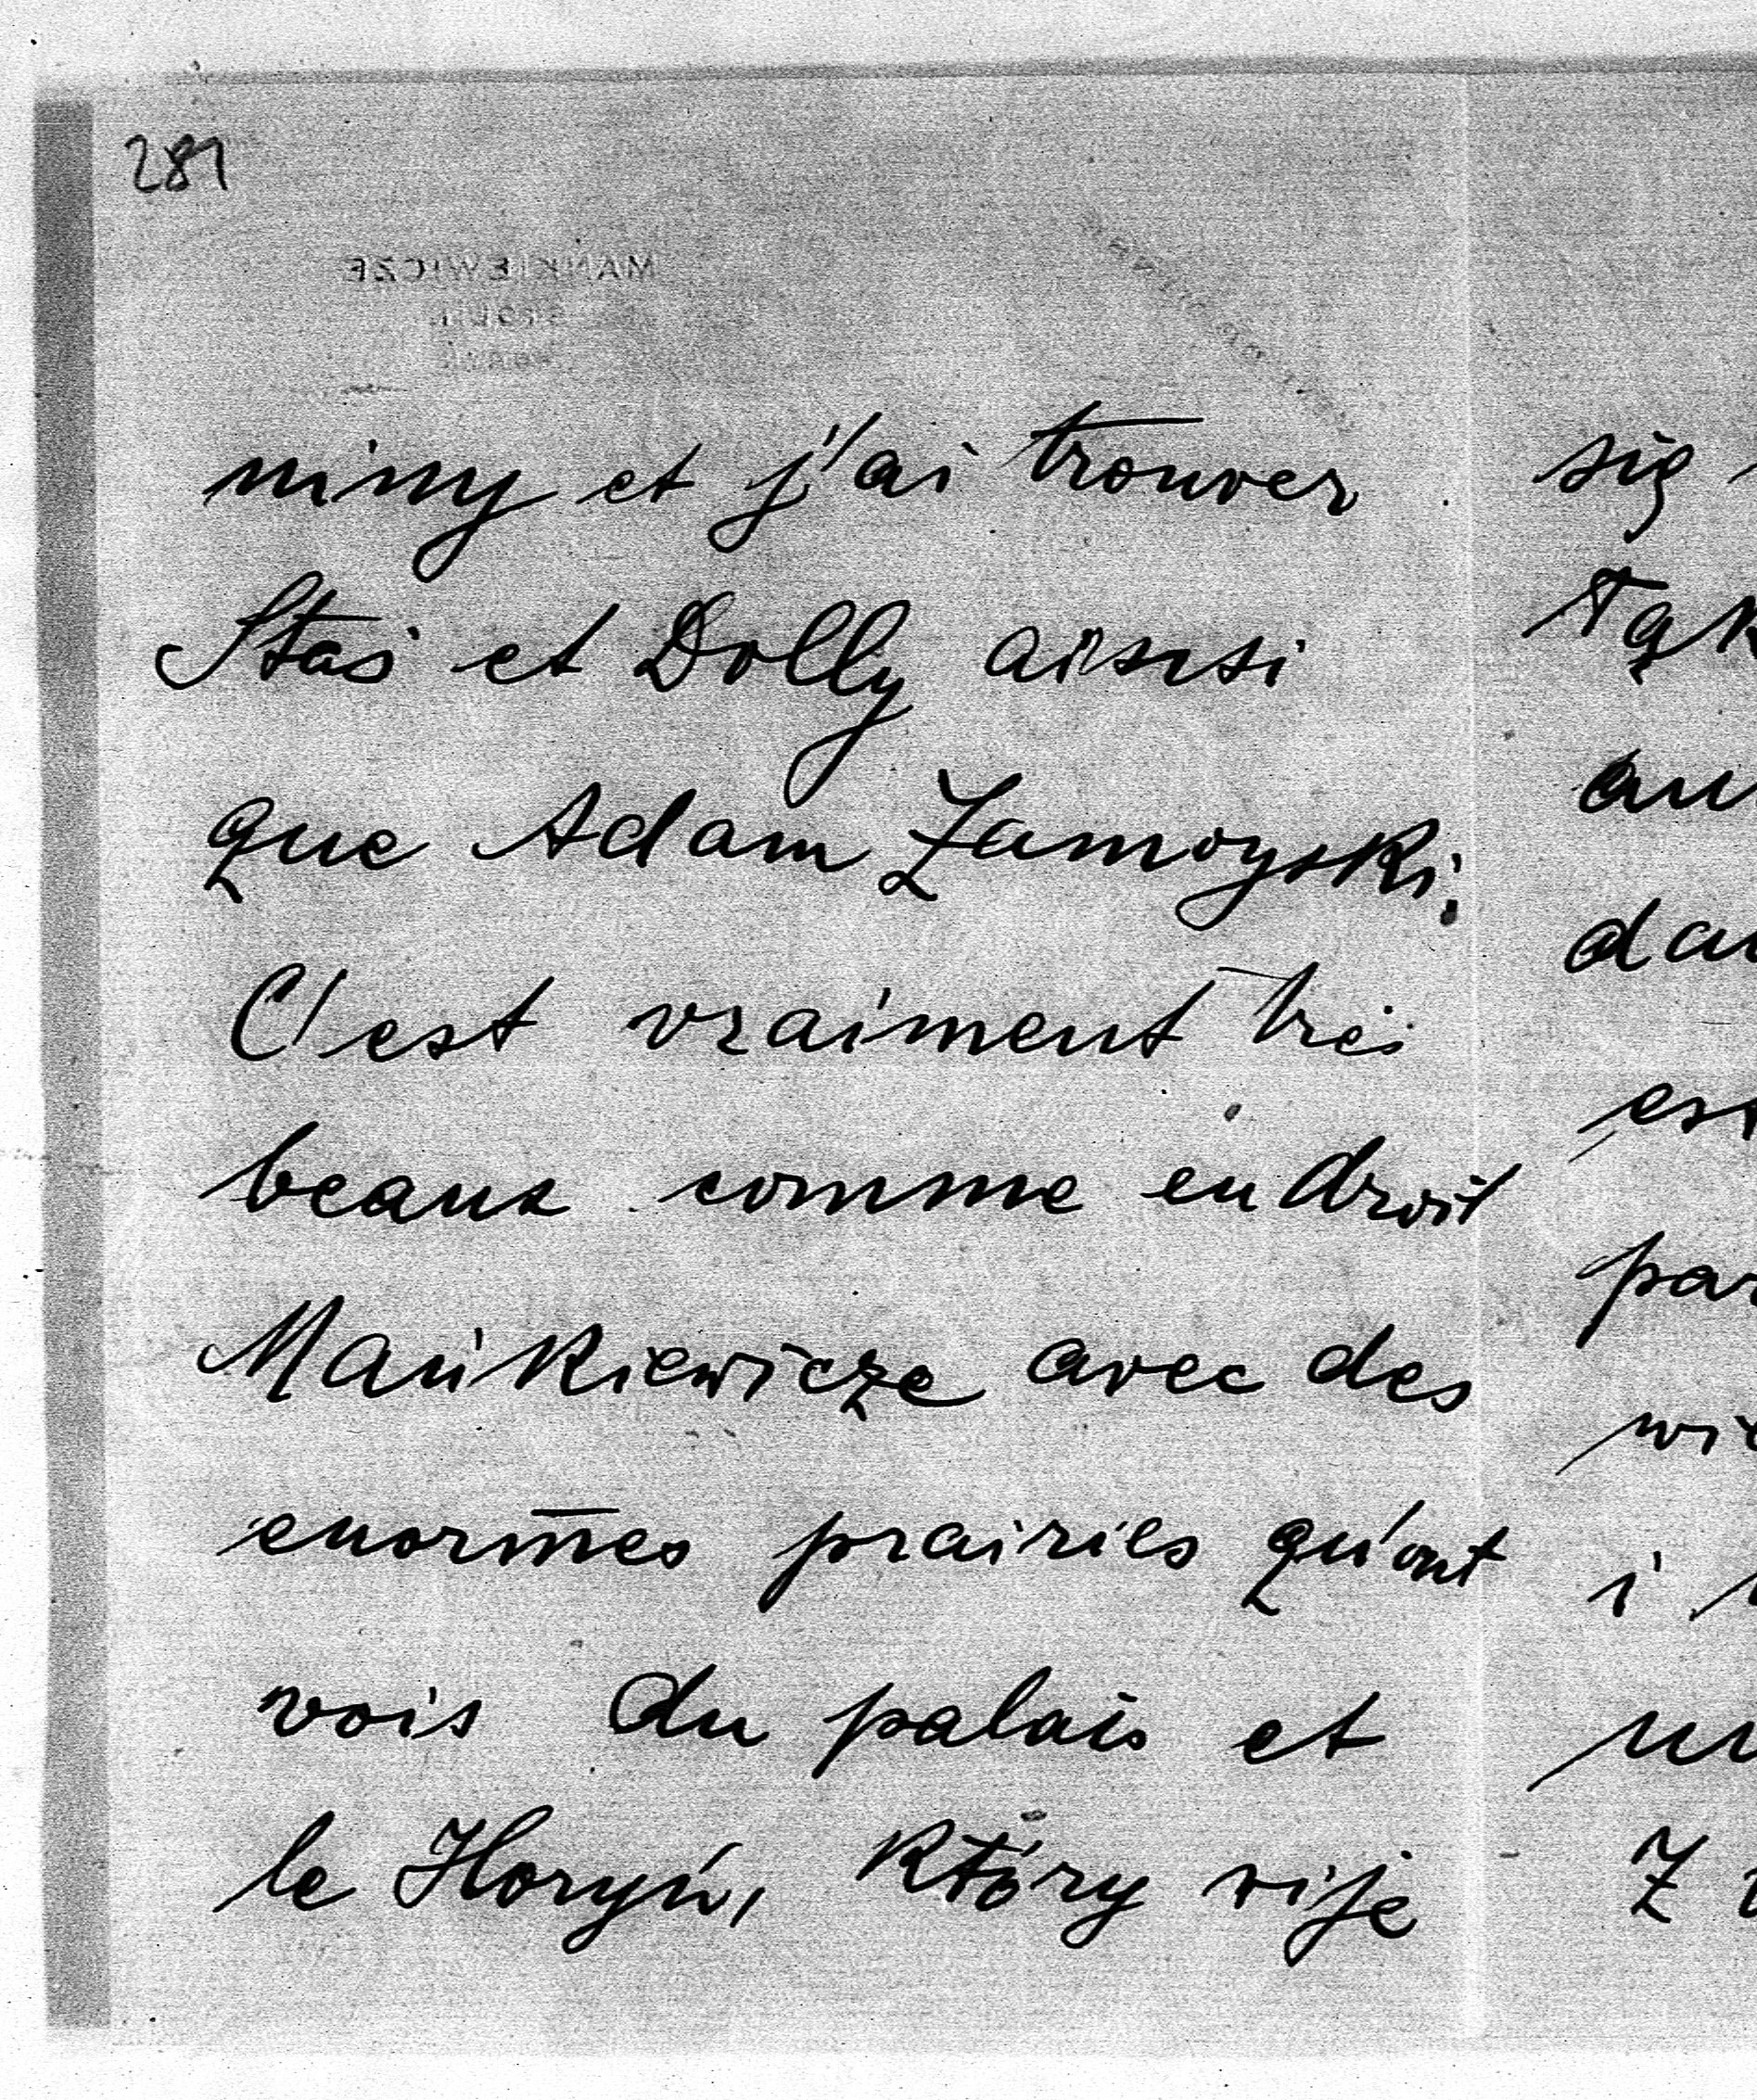 281
MAŃKIEWICZE
niny et j'ai trouver
Staś et Dolly ainsi
que Adam Zamoyski.
C'est vraiment très
beaux comme endroit
Mańkiewicze avec des
enormes prairies qu'ont
vois du palais et
le Horyń, który wije
się
łąk
au
dan
est
par
wie
i
nu
Z